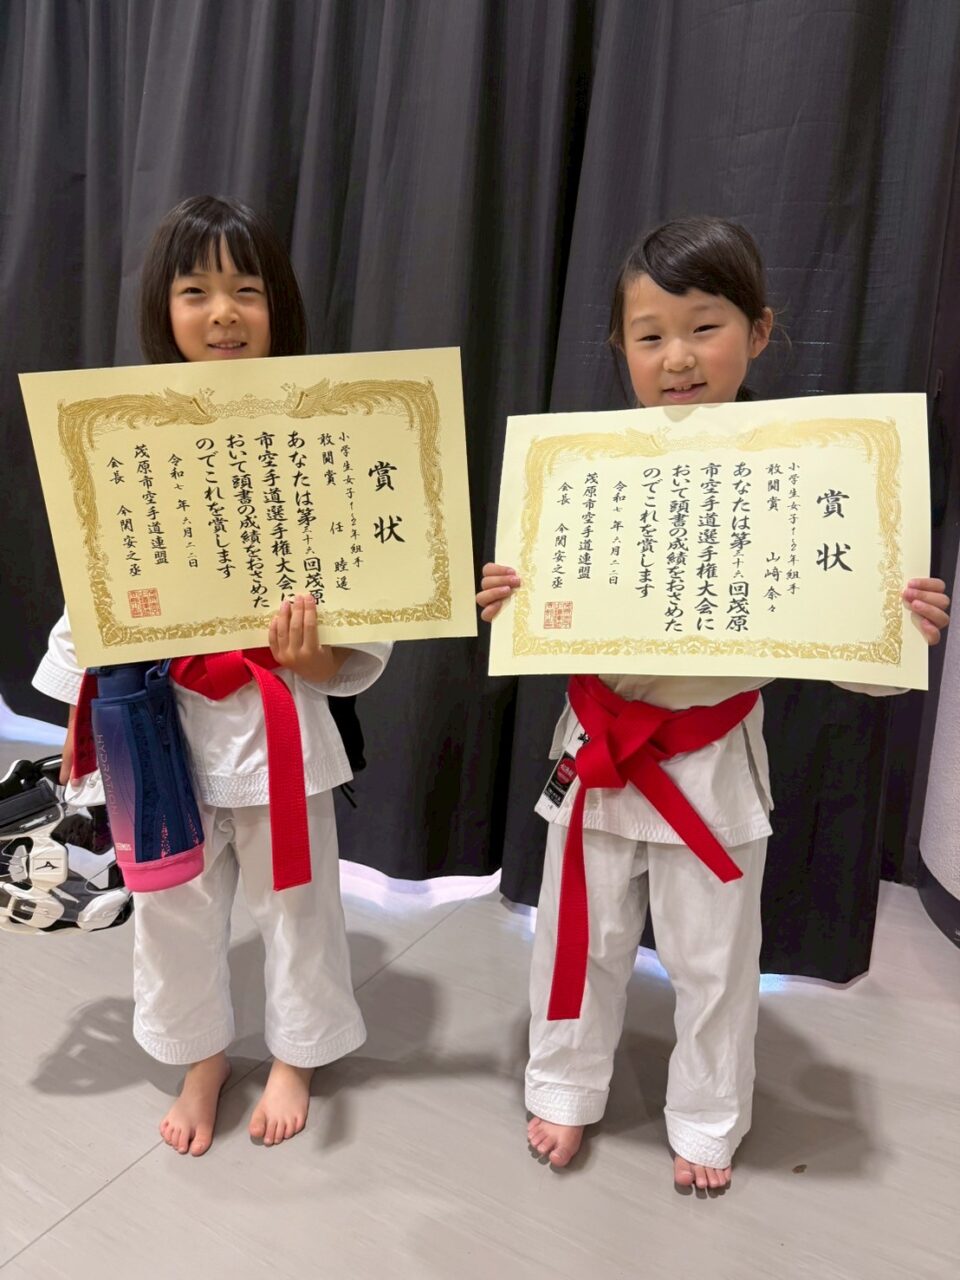 賞状
小学生女子1~2年組手
敢闘賞 任 睦遥
あなたは第三十六回茂原
市空手道選手権大会に
おいて頭書の成績をおさめた
のでこれを賞します
令和七年六月二二日
茂原市空手道連盟
会長 今関安之丞
HYDRATION
THERMOS
賞状
小学生女子1~2年組手
敢闘賞 山崎奈々
あなたは第三十六回茂原
市空手道選手権大会に
おいて頭書の成績をおさめた
のでこれを賞します
令和七年六月二二日
茂原市空手道連盟
会長 今関安之丞